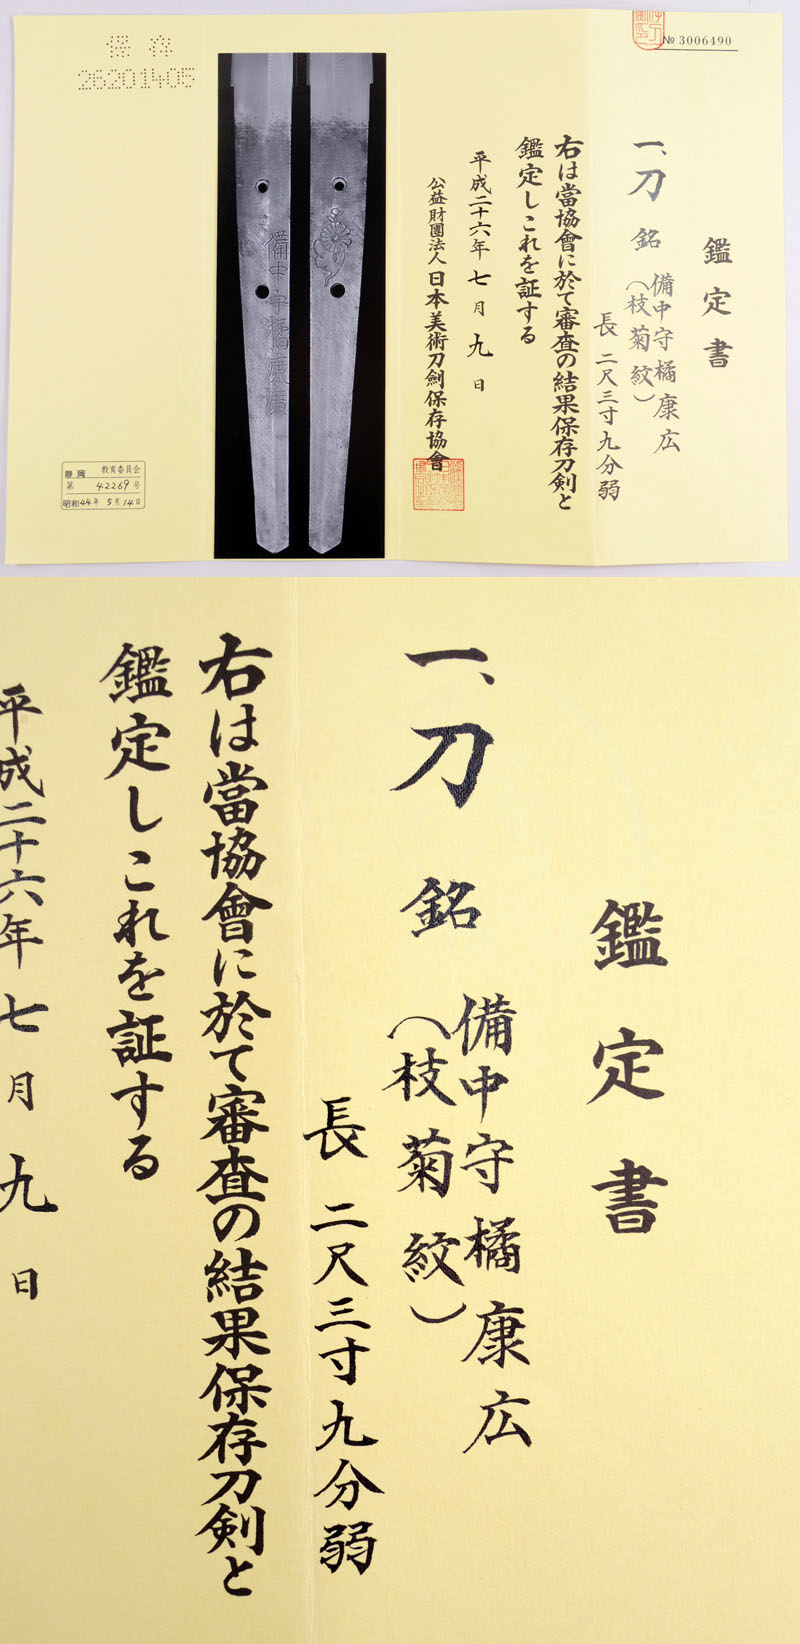 № 3006490
鑑定書
一、刀 銘 備中守橘康広
(枝菊紋)
長 二尺三寸九分弱
右は當協會に於て審査の結果保存刀剣と
鑑定しこれを証する
平成二十六年 七月 九日
公益財團法人 日本美術刀劍保存協會
備中守橘康廣
保存
26201405
静岡 教育委員会
第 42269 号
昭和44年 5月14日
鑑定書
一、刀 銘 備中守橘康広
(枝菊紋)
長 二尺三寸九分弱
右は當協會に於て審査の結果保存刀剣と
鑑定しこれを証する
平成二十六年 七月 九日